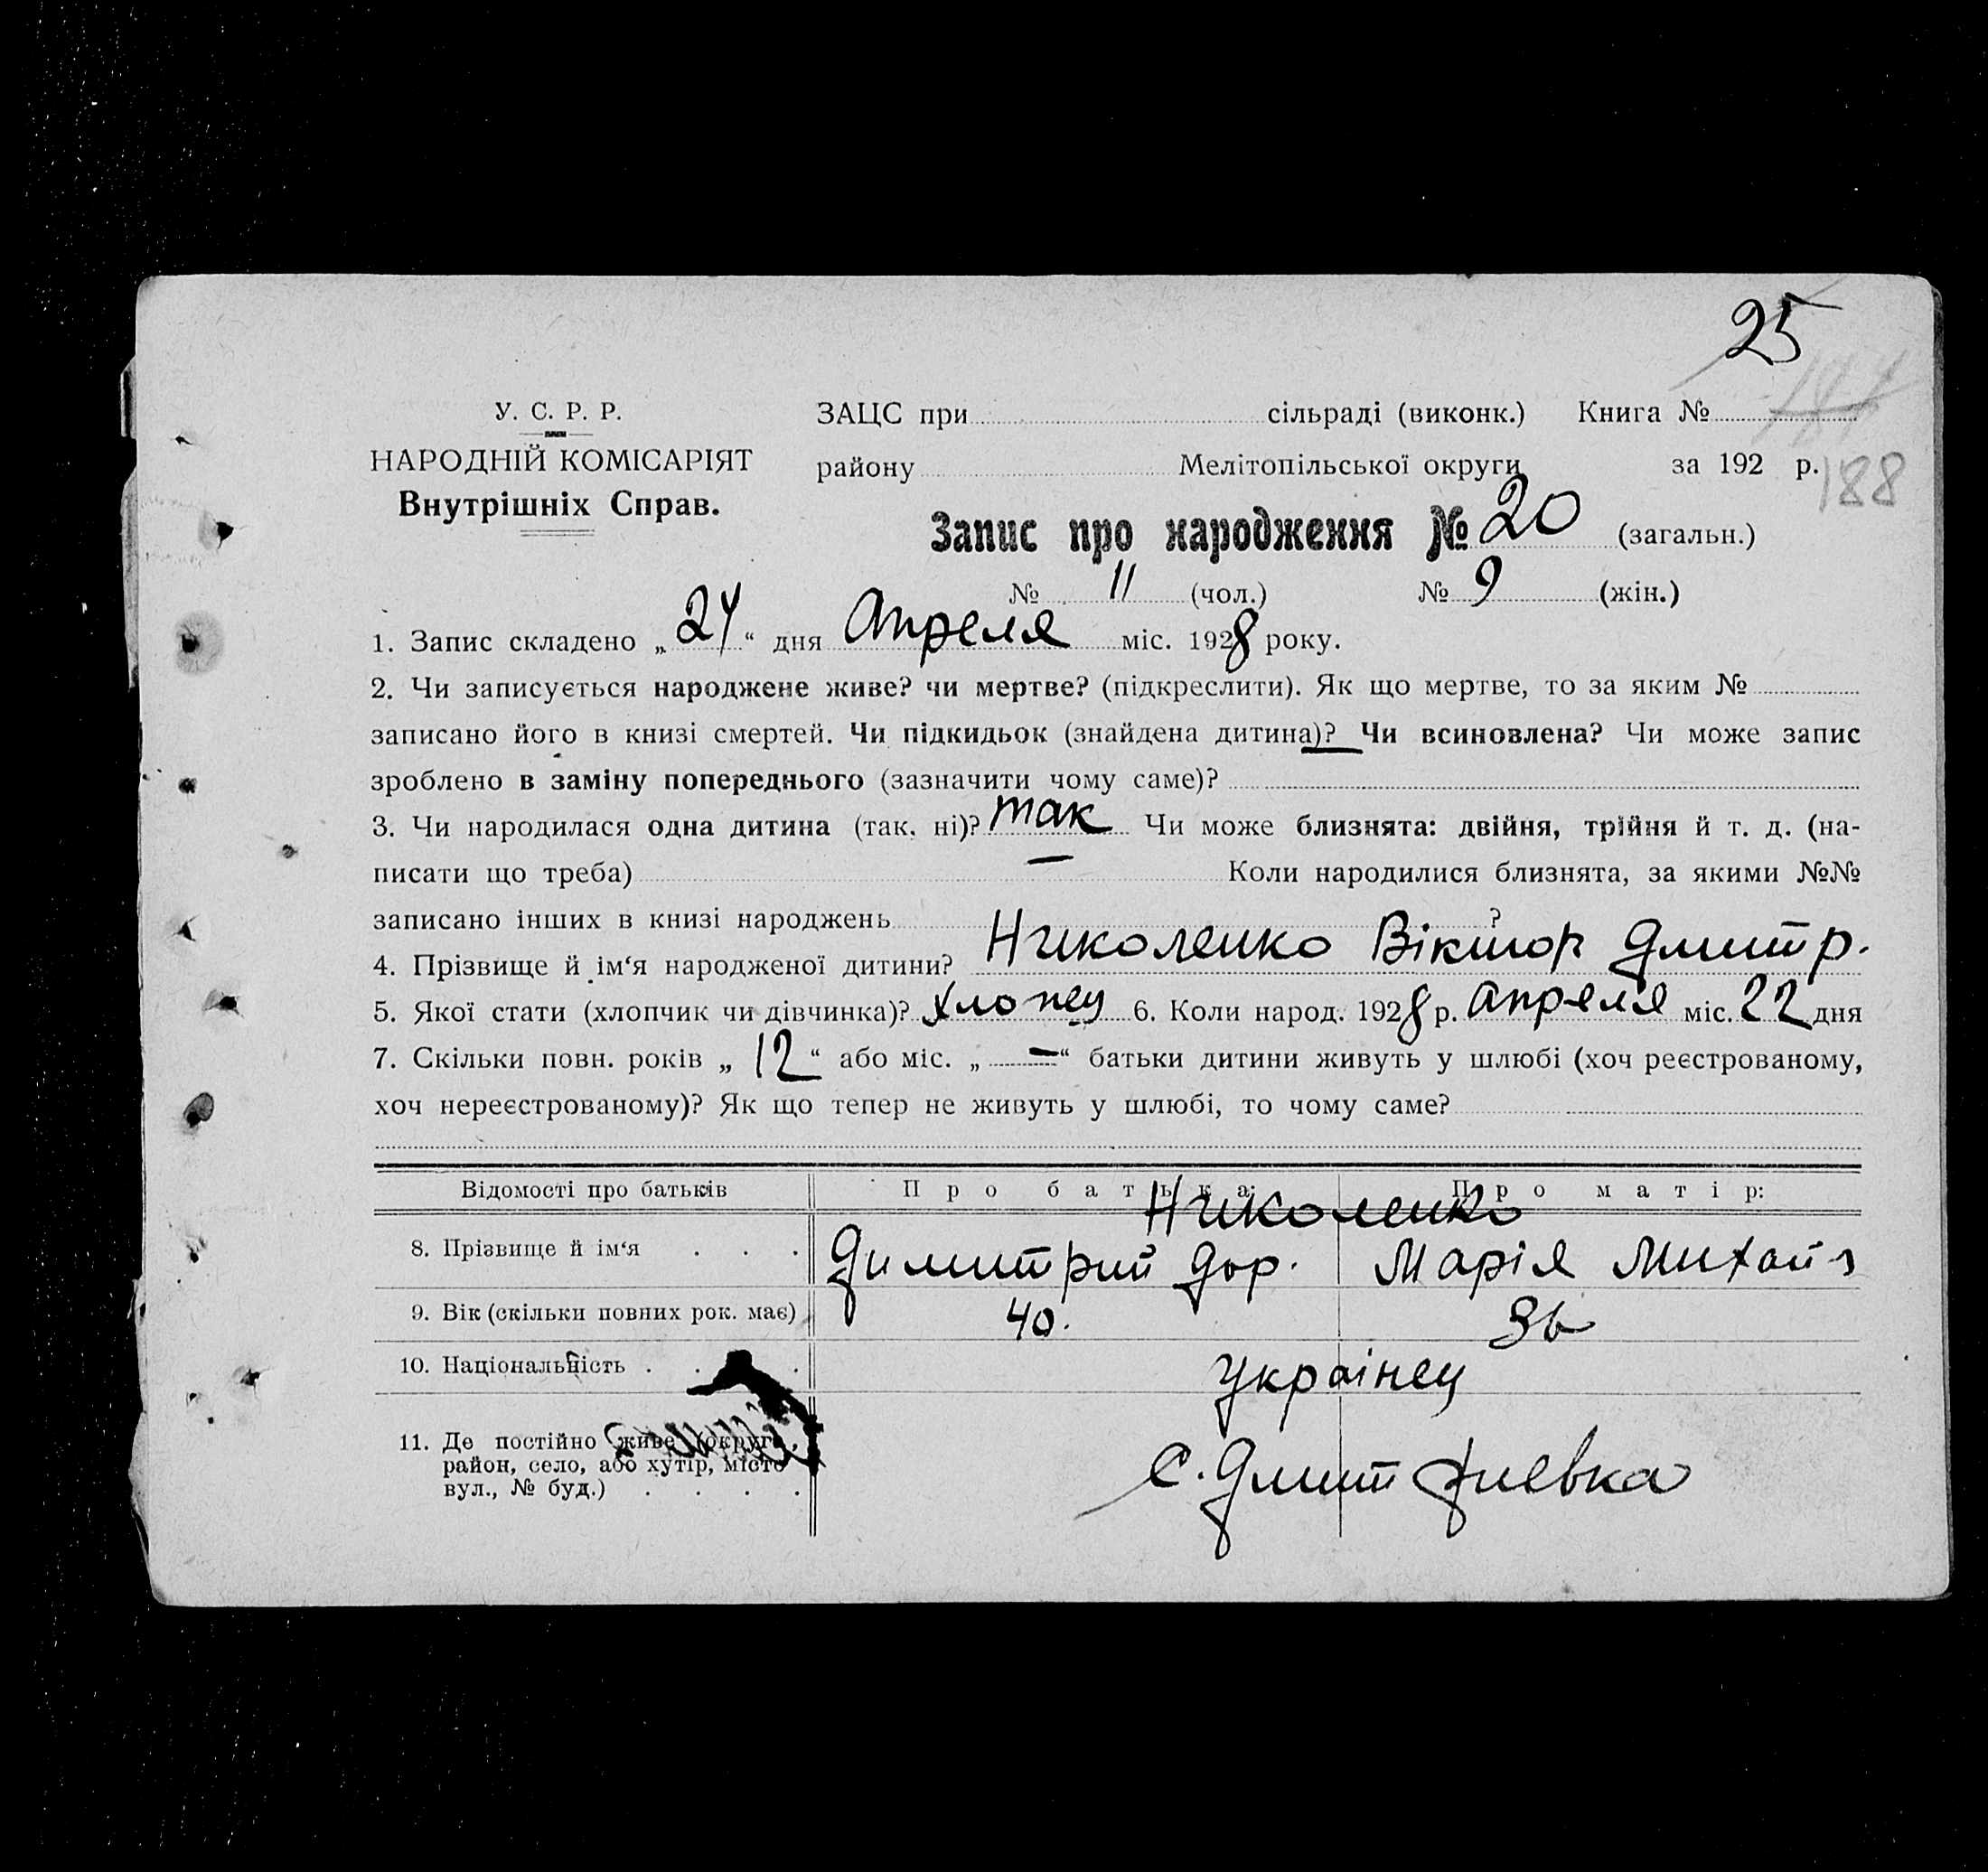 25
У. С. Р. Р.
НАРОДНІЙ КОМІСАРІЯТ
Внутрішніх Справ.
ЗАЦС при сільраді (виконк.) Книга №
району Мелітопільської округи за 192 р.
188
Запис про народження № 20 (загальн.)
№ 11 (чол.) № 9 (жін.)
1. Запис складено „24“ дня Апреля міс. 1928 року.
2. Чи записується народжене живе? чи мертве? (підкреслити). Як що мертве, то за яким №
записано його в книзі смертей. Чи підкидьок (знайдена дитина)? Чи всиновлена? Чи може запис
зроблено в заміну попереднього (зазначити чому саме)?
3. Чи народилася одна дитина (так. ні)? так Чи може близнята: двійня, трійня й т. д. (на-
писати що треба) — Коли народилися близнята, за якими №№
записано інших в книзі народжень ?
4. Прізвище й ім‘я народженої дитини? Николенко Віктор Дмитр.
5. Якої стати (хлопчик чи дівчинка)? хлопец 6. Коли народ. 1928 р. апреля міс. 22 дня
7. Скільки повн. років „12“ або міс. „—“ батьки дитини живуть у шлюбі (хоч реєстрованому,
хоч нереєстрованому)? Як що тепер не живуть у шлюбі, то чому саме?
Відомості про батьків Про батька: Про матір:
Николенко
8. Прізвище й ім‘я . . . Димитрий Дор. Марія Михайл
9. Вік (скільки повних рок. має) 40. 36
10. Національність . . . Украінец
11. Де постійно живе (округа,
район, село, або хутір, місто
вул., № буд.) . . . .
С. Дмитриевка